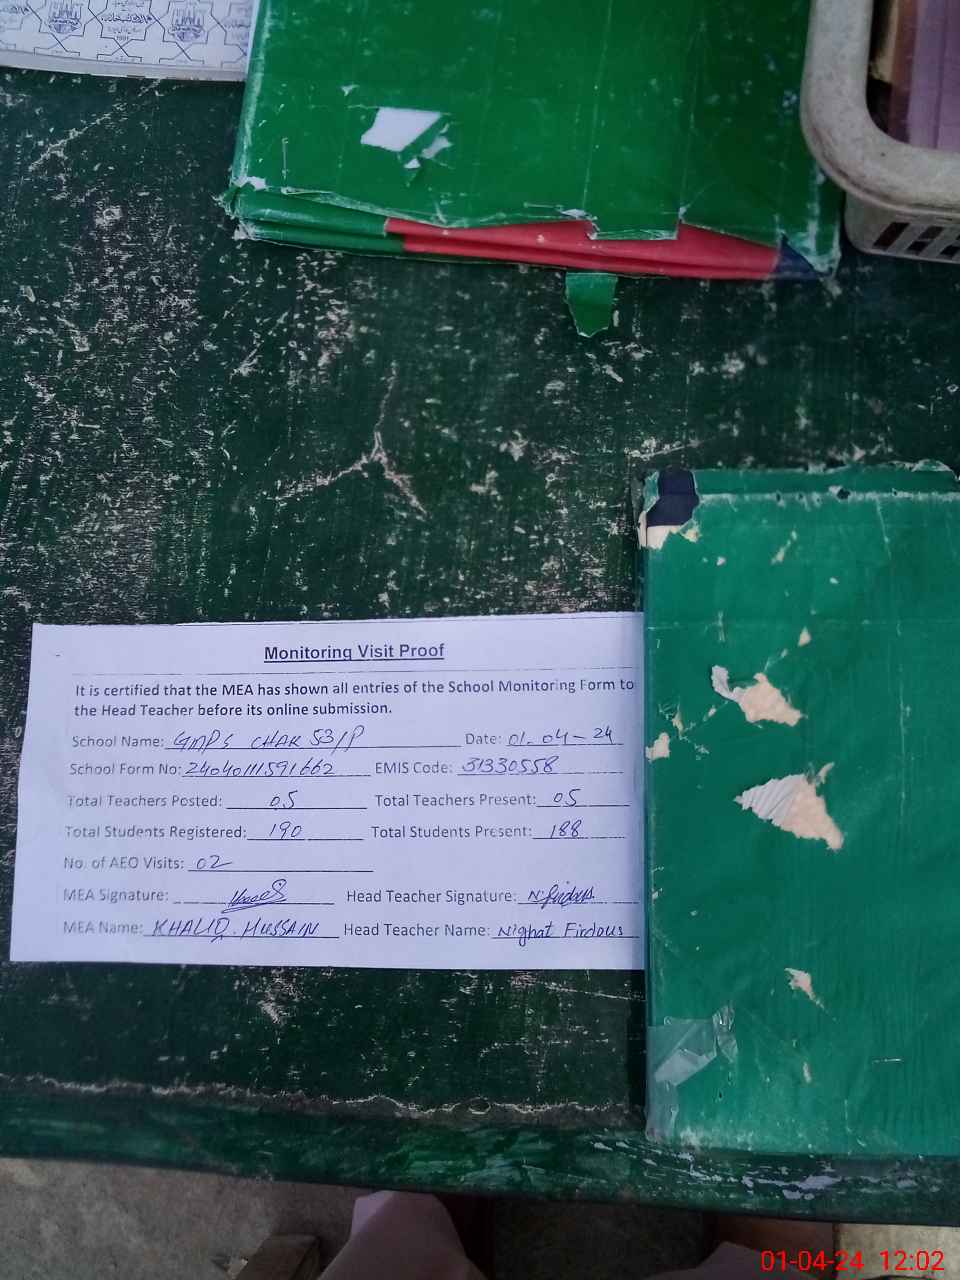 Monitoring Visit Proof
It is certified that the MEA has shown all entries of the School Monitoring Form to
the Head Teacher before its online submission.
School Name: GMPS CHAK 53/P Date: 01-04-24
School Form No: 24040111591662 EMIS Code: 31330558
Total Teachers Posted: 05 Total Teachers Present: 05
Total Students Registered: 190 Total Students Present: 188
No. of AEO Visits: 02
MEA Signature: Head Teacher Signature: N.firdous
MEA Name: KHALIQ. HUSSAIN Head Teacher Name: Nighat Firdous
01-04-24 12:02